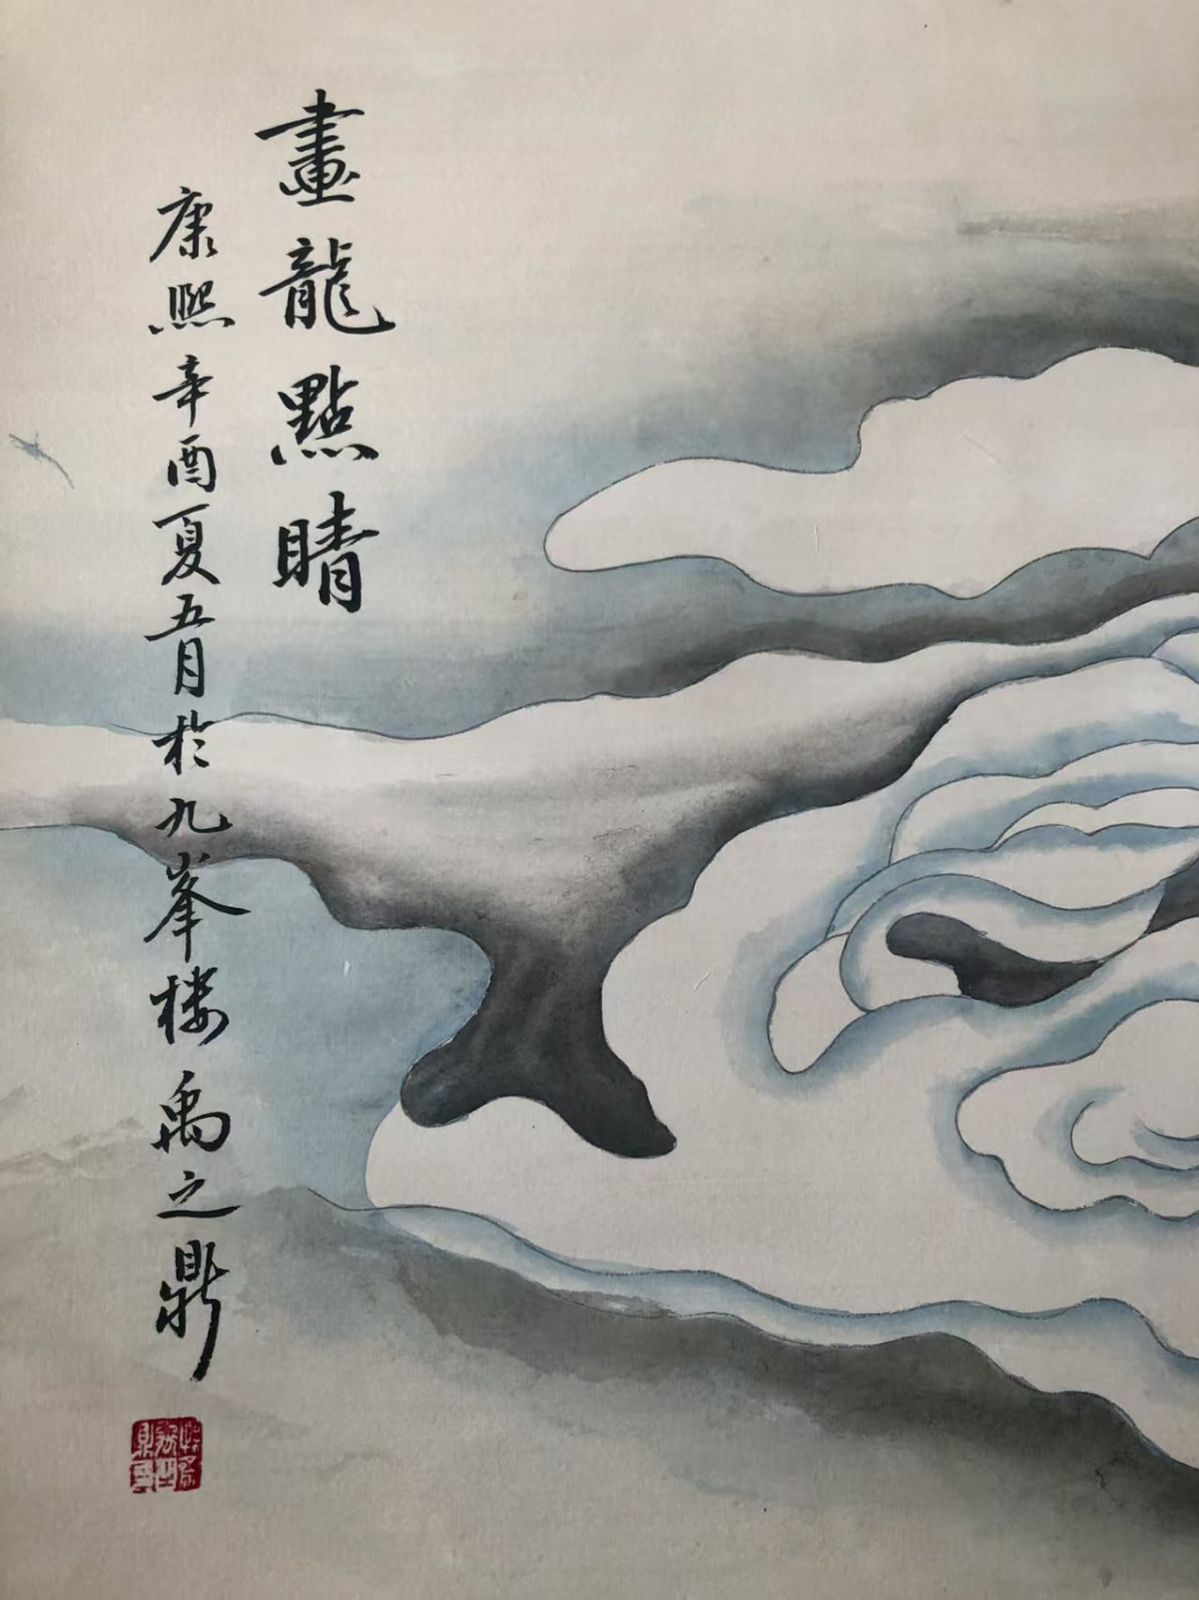 畫龍點睛
康熙辛酉夏五月於九峯樓禹之鼎